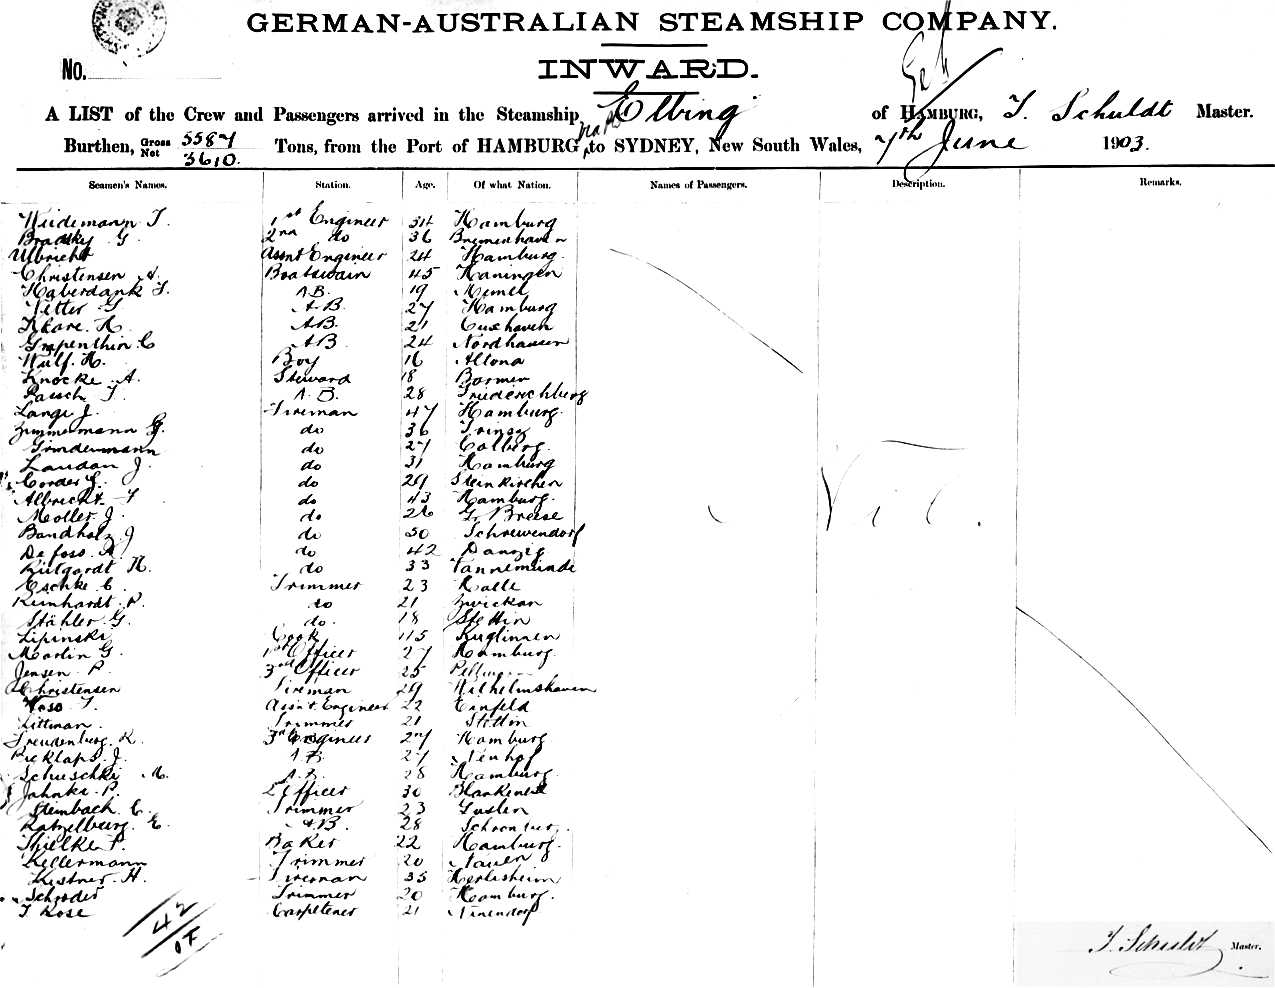 GERMAN-AUSTRALIAN STEAMSHIP COMPANY.
No.
INWARD.
A LIST of the Crew and Passengers arrived in the Steamship Elbing of HAMBURG, T. Schuldt Master.
Burthen, Gross 5587 Net 3610. Tons, from the Port of HAMBURG to SYDNEY, New South Wales, 7th June 1903.
Seamen's Names. Station. Age. Of what Nation. Names of Passengers. Description. Remarks.
Wiedemann T. 1st Engineer 34 Hamburg
Bradsky G. 2nd do 36 Bremenhaven
Ulbricht Assnt Engineer 24 Hamburg.
Christensen A. Boatswain 45 Haningen
Haberdank T. A.B. 19 Memel
Vetter G A.B. 27 Hamburg
Klare. H. A.B. 21 Cuxhaven
Grapenthin C A.B 24 Nordhausen
Wulf. H. Boy 16 Altona
Knocke A. Steward 18 Barmen
Paasch T. A.B. 28 Friederichberg
Lange J. Fireman 47 Hamburg.
Zimmermann G. do 36
do 27 Colberg.
Landan J. do 31 Hamburg
Cordes G. do 29 Steinkirchen
Albrecht T do 43 Hamburg.
Moller. J. do 26 Gr Breese
Bandholz J do 50
do 42 Danzig
H. do 33
Eschke C. Trimmer 23 Halle
Reinhardt. P. do 21 Zwickau
Stähler. G. do. 18 Stettin
Lipinski Cook
Martin G. 1st Officer 27 Hamburg.
Jensen P. 3rd Officer 25
Christensen Fireman 29 Wilhelmshaven
Voss T. Assnt Engineer 22 Einfeld
Littman. Trimmer 21 Stettin
Freudenburg. R. 3rd Engineer 27 Hamburg
J. A.B. 27 Neuhof
Schuschke M. A.B. 28 Hamburg.
Jahnke. P. Officer 30 Blankenese
Steinbach C. Trimmer 23
Katzelburg. E. A.B. 28
Thielke P. Baker 22 Hamburg.
Kellermann Trimmer 20 Nauen
Kestner. H. Fireman 35
Schroder Trimmer 20 Hamburg.
T Rose Carpetener 21
Nil.
42
T. Schuldt Master.